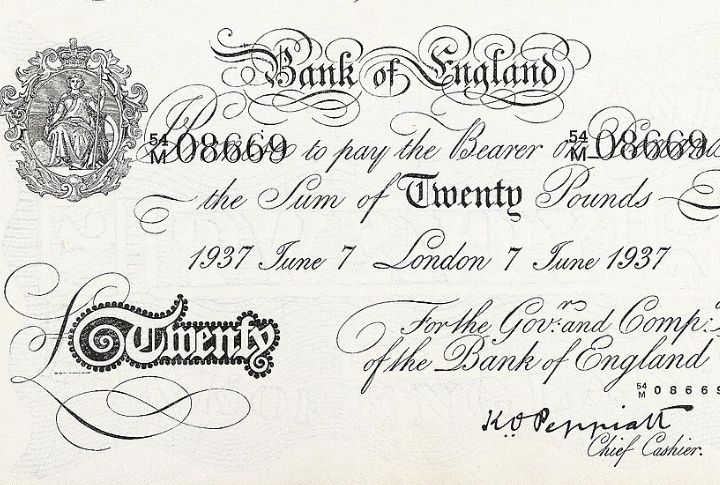 Bank of England
54 M 08669 54 M 08669
to pay the Bearer on
the Sum of Twenty Pounds
1937 June 7 London 7 June 1937
£ Twenty
For the Govr. and Comp:
of the Bank of England
54 M 08669
K.O. Peppiatt
Chief Cashier.